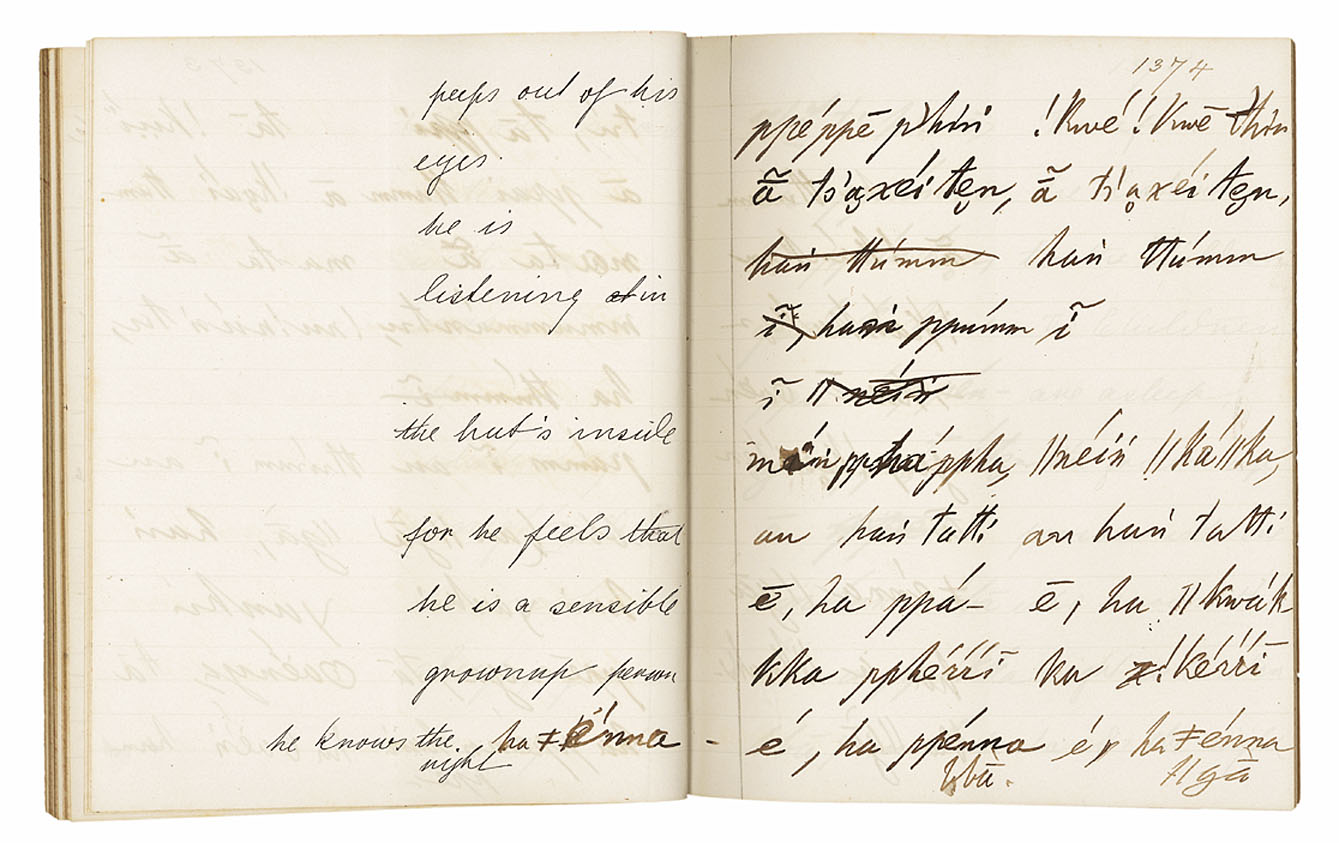 peeps out of his
eyes.
he is
listening in
the hut's inside
for he feels that
he is a sensible
grownup person
he knows the. ha ǂénna -
night
1374
ppéppē !kwé !kwē
ã ts'a̱xéi te̱n, ã ts'a̱xéi te̱n,
haṅ ttúmm haṅ ttúmm
ĩ, ppúmm ĩ
ĩ ǁnéiṅ
ppha, ǁnéiṅ ǁká ǁka,
au haṅ tatti au haṅ tatti
ē, ha ppá- ē, ha ǁkwák-
kka pphérrí ka !kérrí
é, ha ppénna é, ha ǂénna
ǁgā